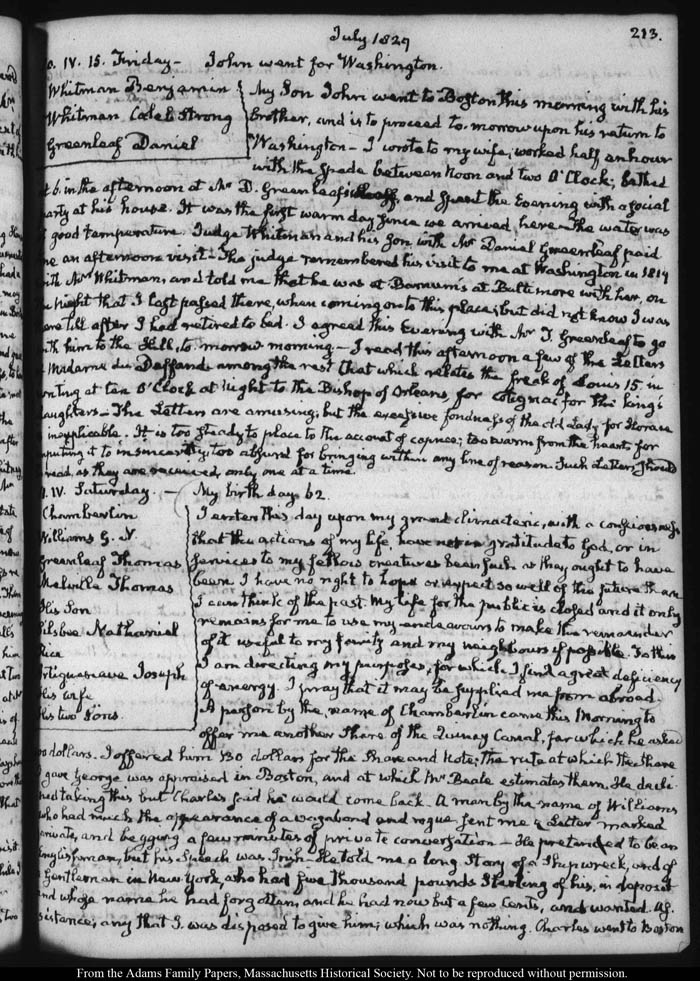 July 1829
213.
IV. 15. Friday - John went for Washington.
Whitman Benjamin
Whitman, Caleb Strong
Greenleaf Daniel
My Son John went to Boston this morning with his
brother, and is to proceed to-morrow upon his return to
Washington - I wrote to my wife; worked half an hour
with the Spade between Noon and two O'Clock; bathed
at 6. in the afternoon at Mr D. Greenleaf's and spent the Evening with a social
party at his house. It was the first warm day since we arrived, here - the water was
good temperature. Judge Whitman and his Son, with Mr Daniel Greenleaf paid
me an afternoon visit - The judge remembered his visit to me at Washington in 1819
with Mrs Whitman, and told me that he was at Barnum's at Baltimore with her, on
Night that I last passed there, when coming on to this place; but did not know I was
there till after I had retired to bed. I agreed this Evening with Mr T. Greenleaf to go
with him to the Hill, to-morrow morning - I read this afternoon a few of the Letters
Madame du Deffand among the rest that which relates the freak of Louis 15. in
at ten O'Clock at Night to the Bishop of Orleans, for Cotignac for the king's
daughters - The Letters are amusing; but the excessive fondness of the old Lady for Horace
inexplicable. It is too steady to place to the account of caprice; too warm from the heart, for
imputing it to insincerity; too absurd for bringing within any line of reason. Such Letters should
read, as they are received, only one at a time.
IV. Saturday. - My birth day 62.
Chamberlin
Williams G. N.
Greenleaf Thomas
Melville Thomas
His Son
Silsbee Nathaniel
Rice
Joseph
His wife
His two Sons.
I enter this day upon my grand climacteric, with a consciousness
that the actions of my life, have not in gratitude to God, or in
services to my fellow creatures been such as they ought to have
been. I have no right to hope or expect so well of the future than
I can think of the past. My life for the public is closed and it only
remains for me to use my endeavours to make the remainder
of it useful to my family and my neighbours if possible. To this
I am directing my purposes, for which I find a great deficiency
of energy. I pray that it may be supplied me from abroad.
A person by the name of Chamberlin came this Morning to
offer me another Share of the Quincy Canal, for which he asked
dollars. I offered him 130 dollars for the Share and Note; the rate at which the Share
I gave George was appraised in Boston, and at which Mr Beale estimates them. He decli-
ned taking this but Charles said he would come back. A man by the name of Williams
who had much the appearance of a vagabond and rogue, sent me a Letter marked
private, and begging a few minutes of private conversation - He pretended to be an
Englishman, but his Speech was Irish - He told me a long Story of a Shipwreck, and of
a Gentleman in New York, who had five thousand pounds Sterling of his, in deposit
and whose name he had forgotten, and he had now but a few Cents, and wanted As-
sistance; any that I was disposed to give him; which was nothing. Charles went to Boston
From the Adams Family Papers, Massachusetts Historical Society. Not to be reproduced without permission.